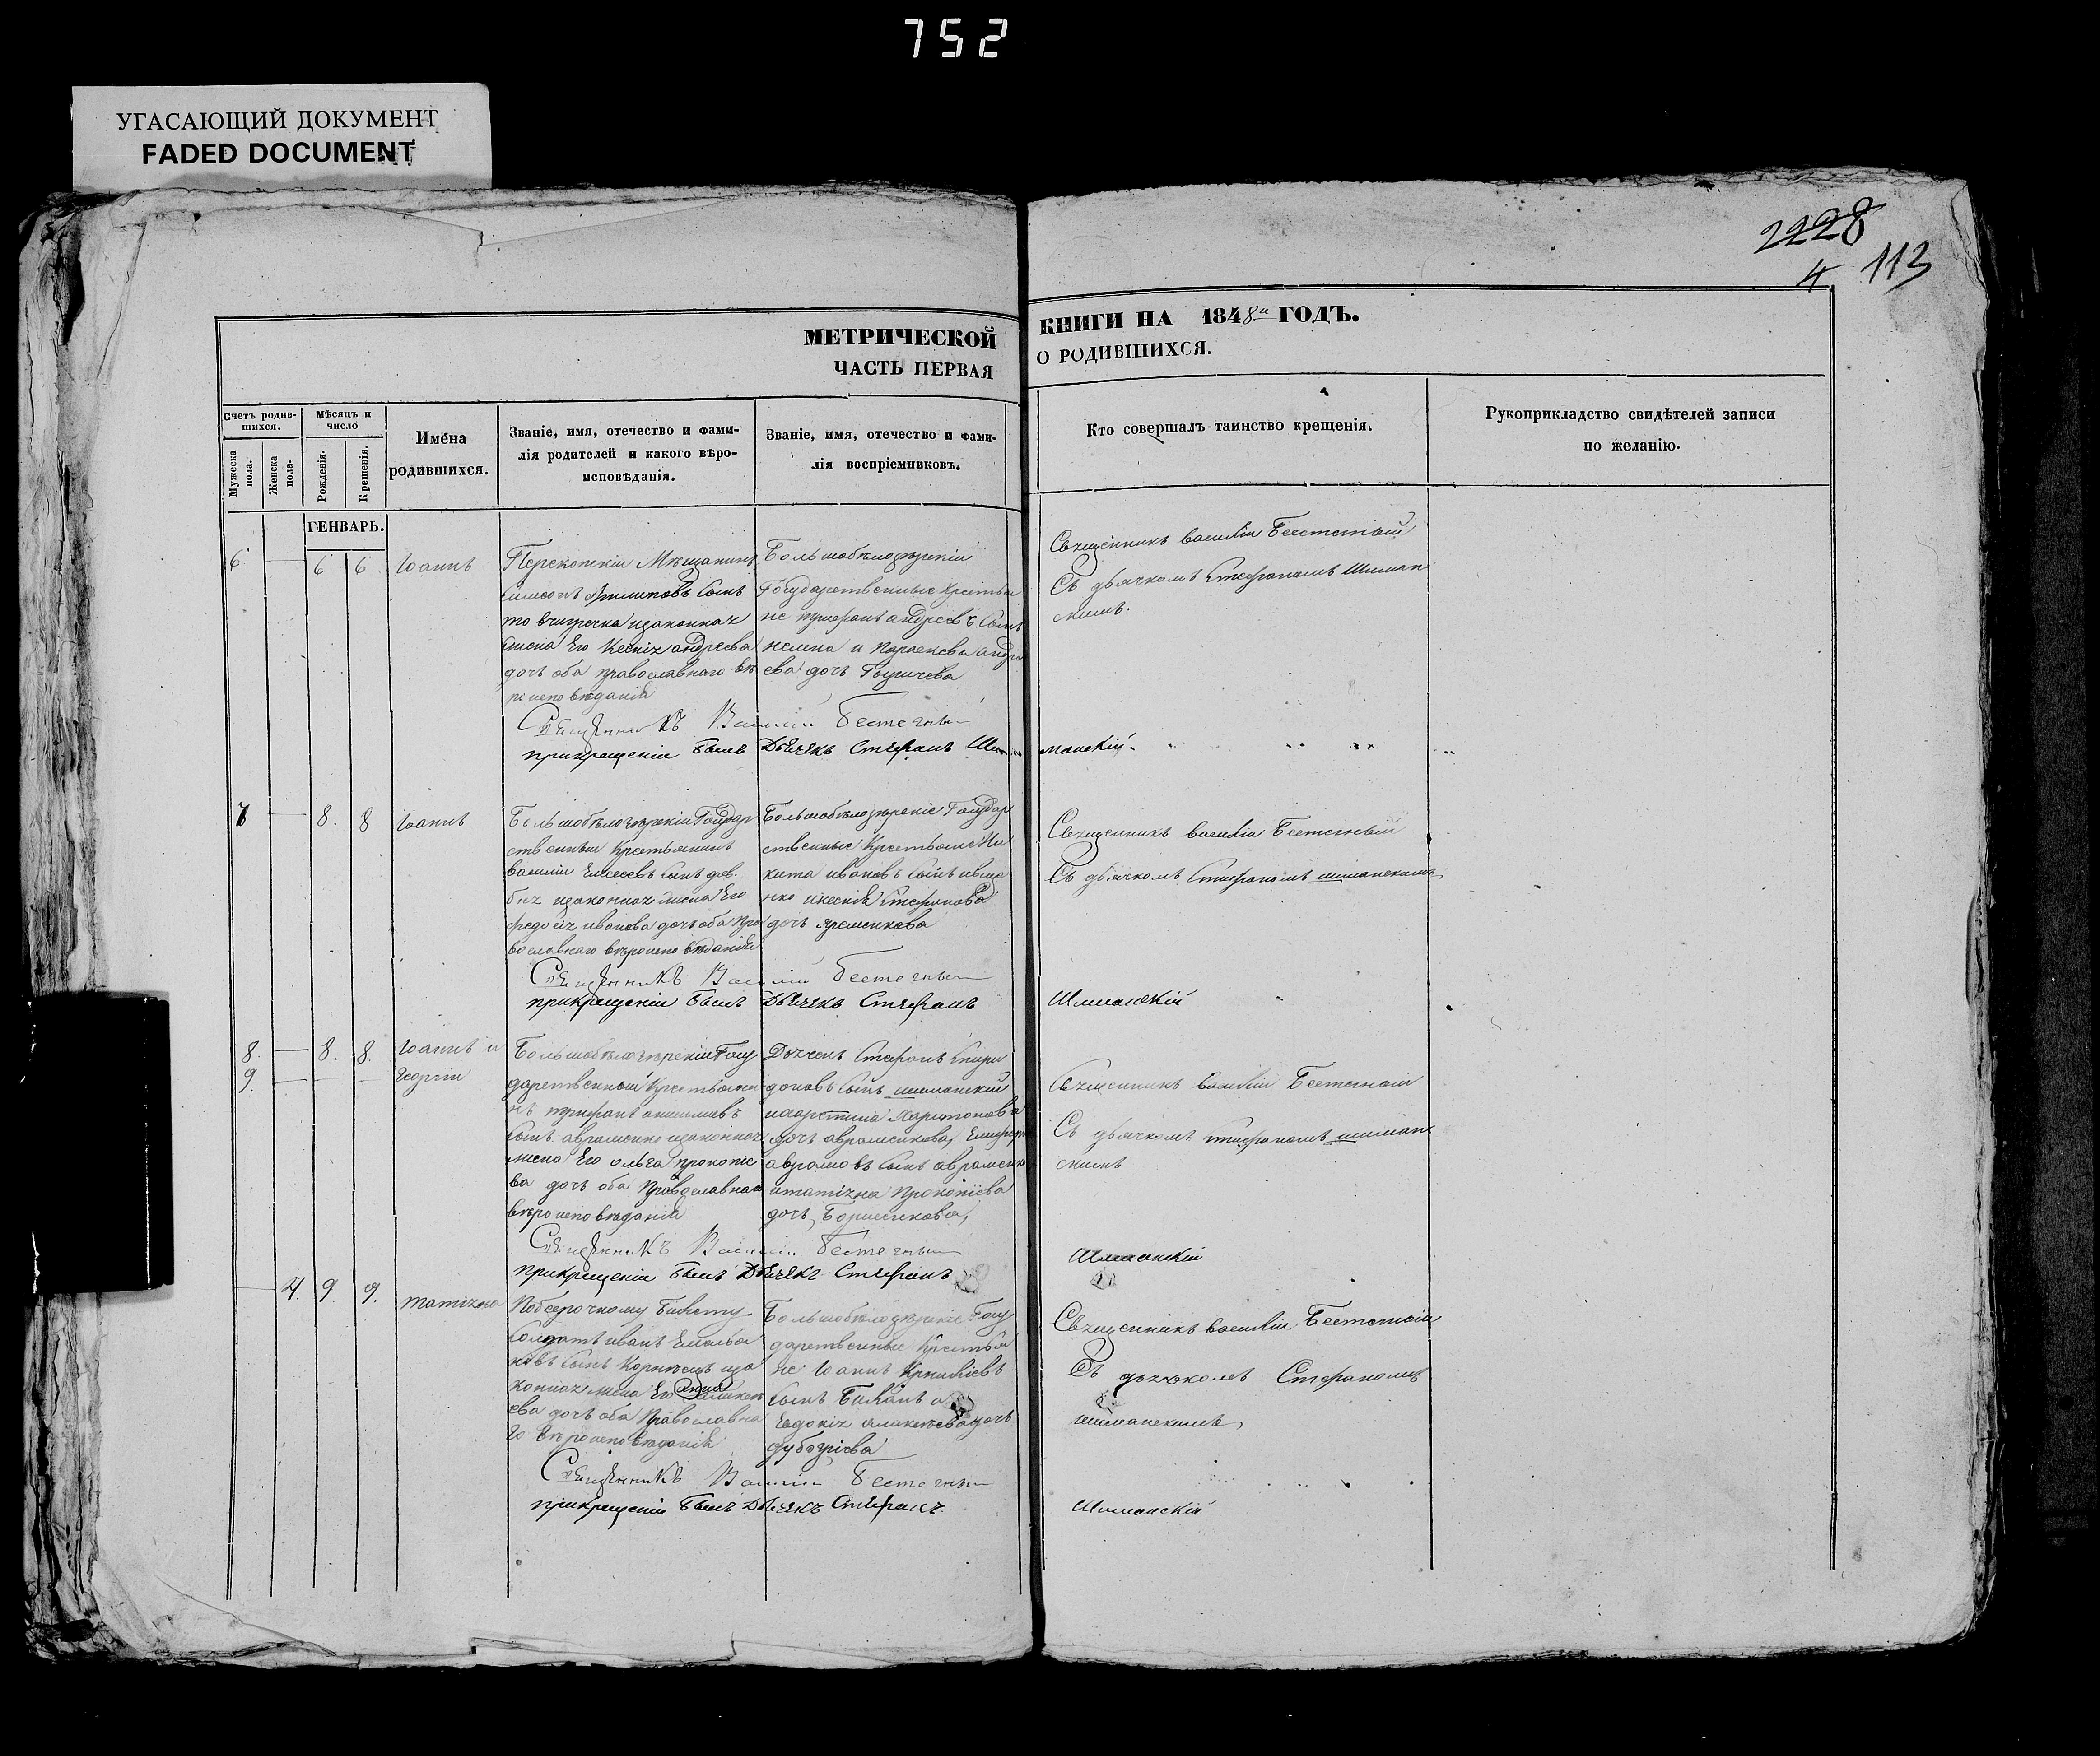 752
УГАСАЮЩИЙ ДОКУМЕНТ
FADED DOCUMENT
2228
4 113
МЕТРИЧЕСКОЙ
ЧАСТЬ ПЕРВАЯ
КНИГИ НА 1848й ГОДЪ.
О РОДИВШИХСЯ.
Счетъ родив-
шихся.
Мужеска пола.
Женска пола.
Мѣсяцъ и
число
Рожденія.
Крещенія.
Имена
родившихся.
Званіе, имя, отечество и фами-
лія родителей и какого вѣро-
исповѣданія.
Званіе, имя, отечество и фами-
лія воспріемниковъ.
Кто совершалъ таинство крещенія.
Рукоприкладство свидѣтелей записи
по желанію.
ГЕНВАРЬ.
6 6 6 Іоаннъ
Перекопскіи Мѣщанинъ
Симеонъ Филиповъ сынъ
законная
жена Его Ксенія андреева
дочь оба православнаго вѣ
роисповѣданія
Большобѣлозерскіи
Государственные Крестья
не трифонъ андреевъ сынъ
и Параскева андре
ева дочь
Священникъ василіи Бестетныи
Съ дьячкомъ Стефаномъ Шиман
скимъ.
Священникъ Василіи
прикрещеніи былъ Дьячекъ Стефанъ Ши
манскій
7 8. 8 Іоаннъ
Большобѣлозерскіи Государ
ственныи Крестьянинъ
василіи Елисеевъ сынъ дов.
бня изаконная жена Его
федосія иванова дочь оба Пра
вославнаго вѣроисповѣданія
Большобѣлозерскіе Государ
ственные Крестьяне Ни
кита ивановъ сынъ иваще
нко иксенія Стефанова
дочь яременкова
Священникъ василіи Бестетныи
Съ дьячкомъ Стефаномъ шиманскимъ
Священникъ Василіи
прикрещеніи былъ Дьячекъ Стефанъ
Шиманскій
8. 8. 8. Іоаннъ и
9. Георгіи
Большобѣлозерскіи Госу
дарственныи Крестьяни
нъ трифонъ
сынъ авраменко изаконная
жена Его ольга прокопіе
ва дочь оба Православнаго
вѣроисповѣданія
Дьячекъ Стефанъ Спири
доновъ сынъ шиманскій
Харитонова
дочь авраменкова,
аврамовъ сынъ авраменко
итатіяна Прокопіева
дочь, Борисенкова,
Священникъ василіи Бестетныи
Съ дьячкомъ стефаномъ шиман
скимъ
Священникъ Василіи
прикрещеніи былъ Дьячекъ Стефанъ
Шиманскій
4. 9. 9. татіяна
Побсерочному билету
Солдатъ иванъ Емелья
новъ сынъ Корнѣецъ иза
конная жена Его
ева дочь оба Православна
го вѣроисповѣданія
Большобѣлозерскіе Госу
дарственные Крестья
не Іоаннъ
сынъ
Евдокія алексѣева дочь
Священникъ василіи Бестетныи
Съ дьячкомъ Стефаномъ
шиманскимъ
Священникъ Василіи
прикрещеніи былъ Дьячекъ Стефанъ
Шиманскій